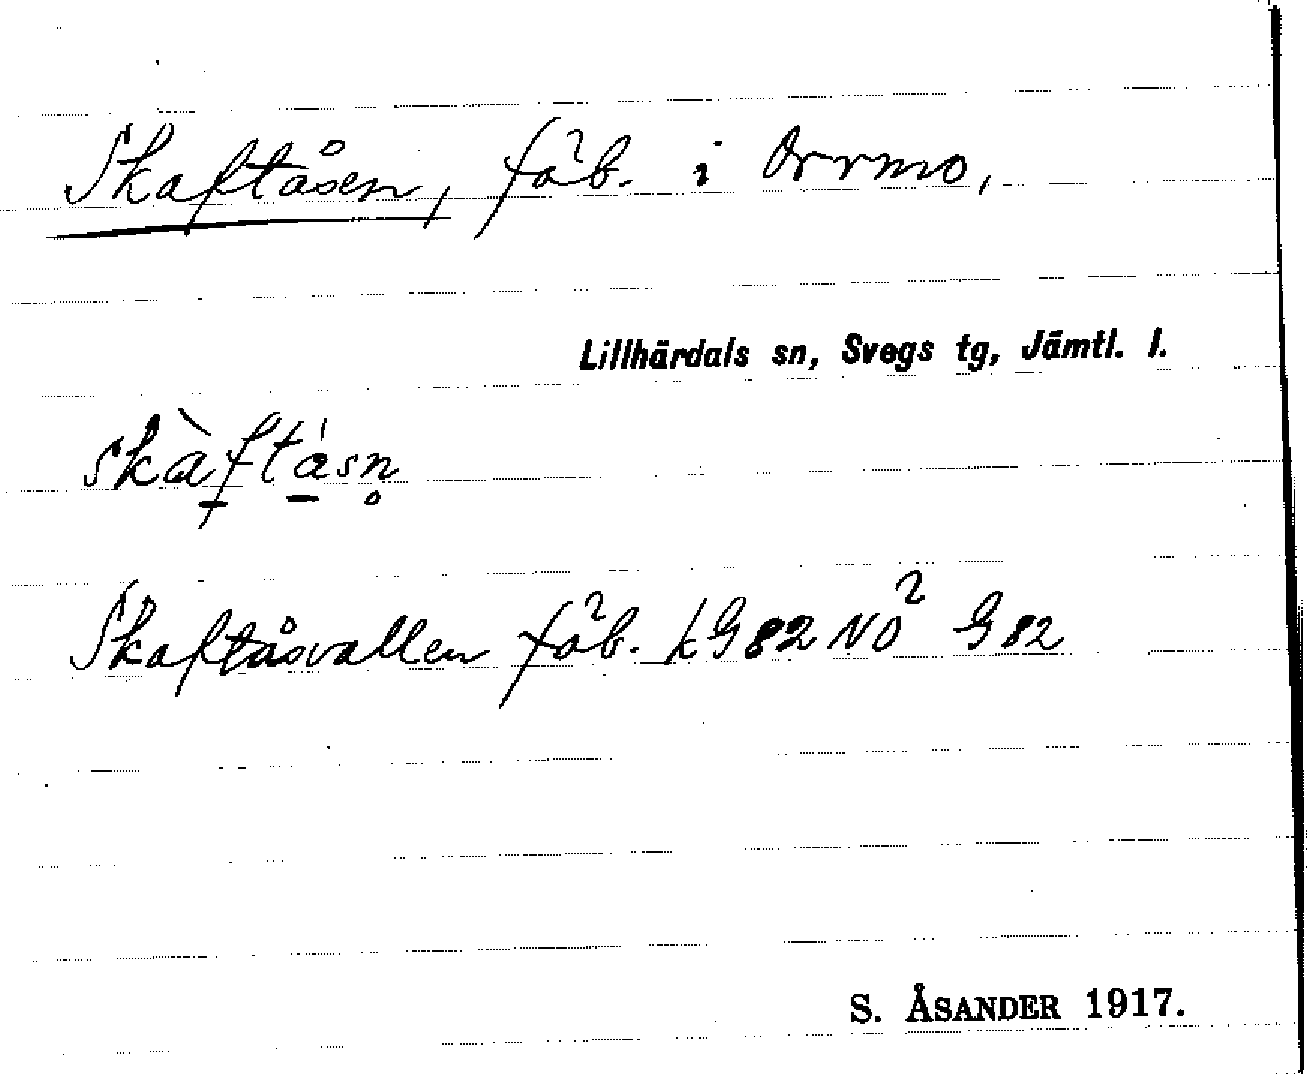 Skaftåsen, fäb. i Orrmo,
Lillhärdals sn, Svegs tg, Jämtl. l.
skàf̱tá̱sn̥
Skaftåsvallen fäb. kG82 NO² G82
S. ÅSANDER 1917.